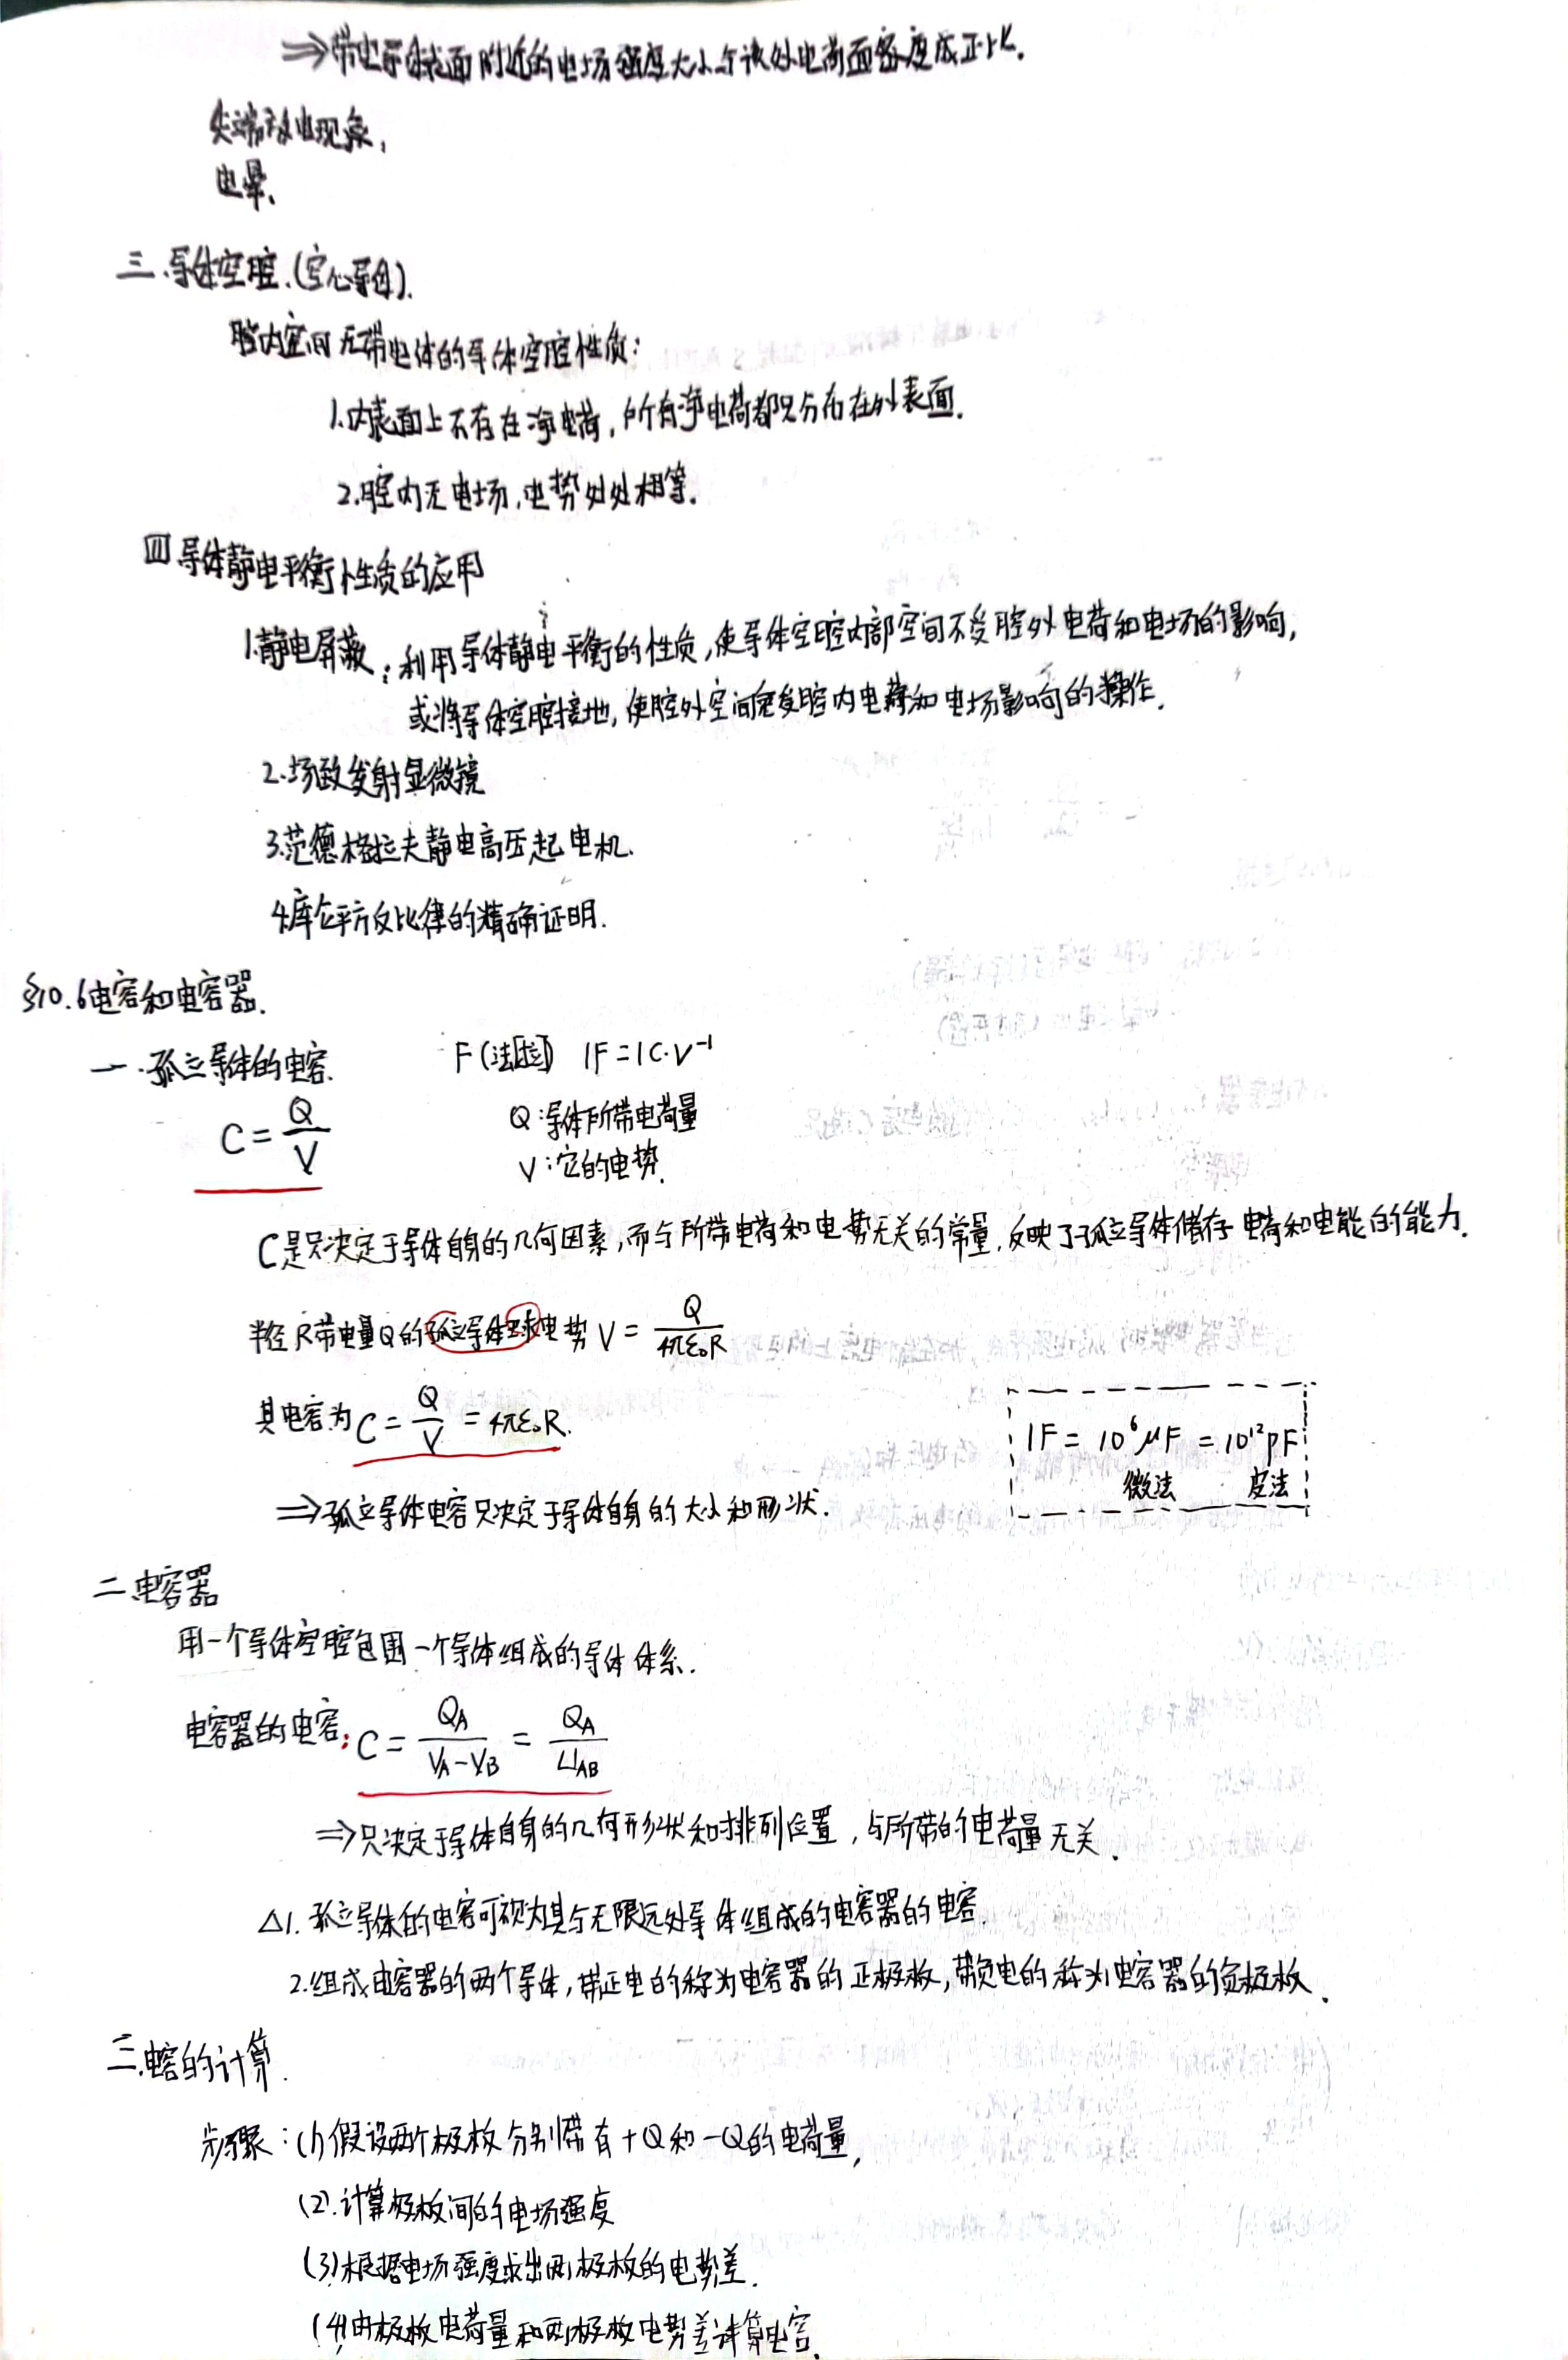 ⇒带电导体表面附近的电场强度大小与该处电荷面密度成正比.
尖端放电现象,
电晕.
三.导体空腔.(空心导体).
腔内空间无带电体的导体空腔性质:
1.内表面上不存在净电荷,所有净电荷都只分布在外表面.
2.腔内无电场,电势处处相等.
四导体静电平衡性质的应用
1.静电屏蔽:利用导体静电平衡的性质,使导体空腔内部空间不受腔外电荷和电场的影响,
或将导体空腔接地,使腔外空间免受腔内电荷和电场影响的操作.
2.场致发射显微镜
3.范德格拉夫静电高压起电机.
4.库仑平方反比律的精确证明.
§10.6电容和电容器.
一.孤立导体的电容. F(法[拉]) 1F=1C·V⁻¹
C=Q/V Q:导体所带电荷量
V:它的电势.
C是只决定于导体自身的几何因素,而与所带电荷和电势无关的常量,反映了孤立导体储存电荷和电能的能力.
半径R带电量Q的孤立导体球电势 V=Q/4πε₀R
其电容为 C=Q/V=4πε₀R.
1F=10⁶μF=10¹²pF
微法 皮法
⇒孤立导体电容只决定于导体自身的大小和形状.
二.电容器
用一个导体空腔包围一个导体组成的导体体系.
电容器的电容: C=Q_A/(V_A-V_B)=Q_A/U_AB
⇒只决定于导体自身的几何形状和排列位置,与所带的电荷量无关.
△1.孤立导体的电容可视为其与无限远处导体组成的电容器的电容.
2.组成电容器的两个导体,带正电的称为电容器的正极板,带负电的称为电容器的负极板.
三.电容的计算.
步骤:(1)假设两个极板分别带有+Q和-Q的电荷量,
(2).计算极板间的电场强度
(3)根据电场强度求出两极板的电势差.
(4)由极板电荷量和两极板电势差计算电容.